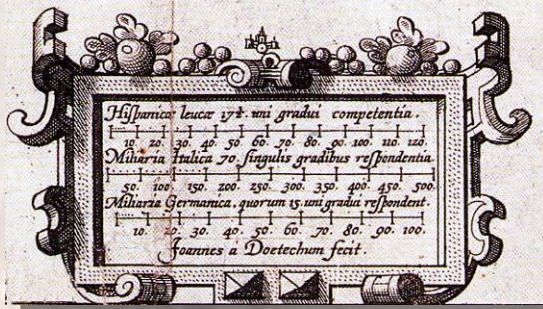 Hispanicæ leucæ 17½. uni gradui competentia.
10. 20. 30. 40. 50. 60. 70. 80. 90. 100. 110. 120.
Miliaria Italica 70. singulis gradibus respondentia
50. 100. 150. 200. 250. 300. 350. 400. 450. 500.
Miliaria Germanica, quorum 15. uni gradui respondent.
10. 20. 30. 40. 50. 60. 70. 80. 90. 100.
Joannes a Doetechum fecit.